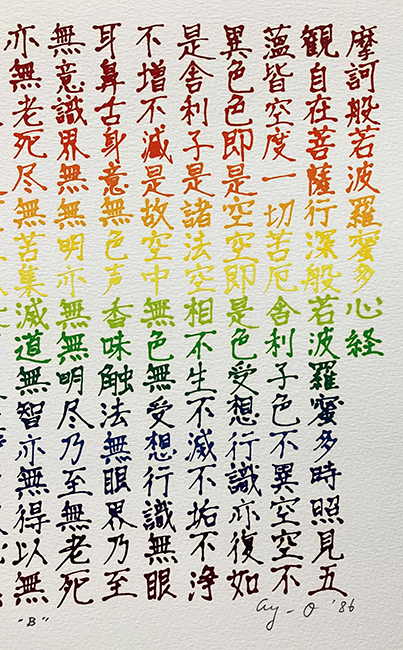 摩訶般若波羅蜜多心経
観自在菩薩行深般若波羅蜜多時照見五
蘊皆空度一切苦厄舎利子色不異空空不
異色色即是空空即是色受想行識亦復如
是舎利子是諸法空相不生不滅不垢不浄
不増不減是故空中無色無受想行識無眼
耳鼻舌身意無色声香味触法無眼界乃至
無意識界無無明亦無無明尽乃至無老死
亦無老死尽無苦集滅道無智亦無得以無
"B"
ay-O '86